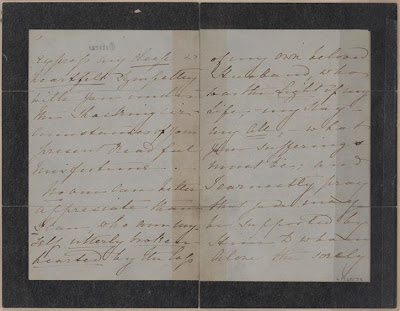 express my deep &
heartfelt sympathy
with you under
the shocking cir-
cumstances of your
present dreadful
misfortune.
No one can better
appreciate than
I can, who am my-
self utterly broken
hearted by the loss
of my own beloved
Husband, who
was the Light of my
Life, – my Stay –
my All, – what
your sufferings
must be; and
I earnestly pray
that you may
be supported by
Him to whom
alone the sorely